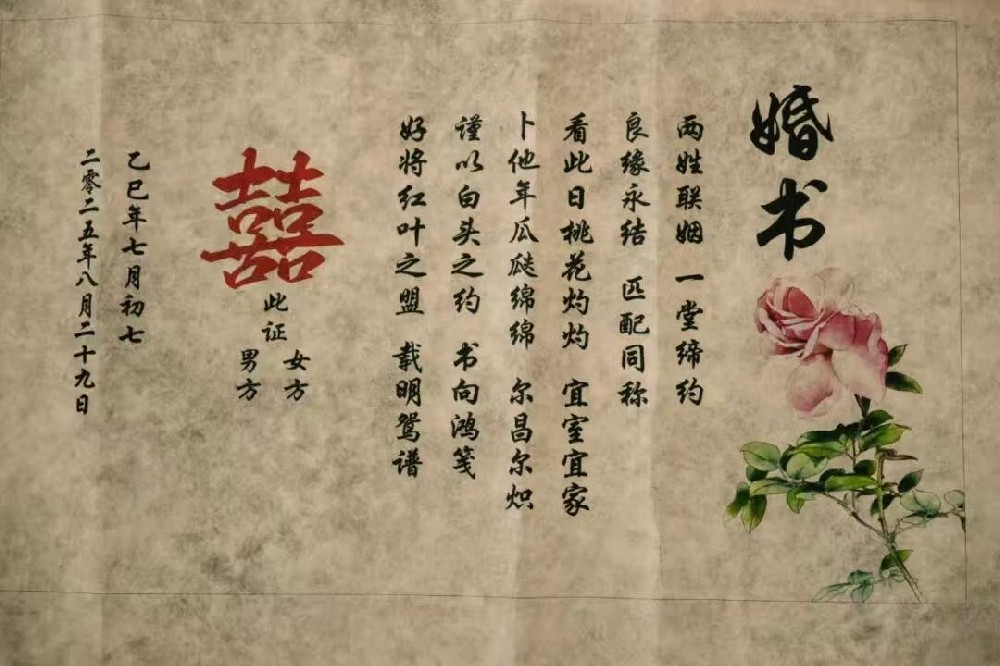 婚书
两姓联姻 一堂缔约
良缘永结 匹配同称
看此日桃花灼灼 宜室宜家
卜他年瓜瓞绵绵 尔昌尔炽
谨以白头之约 书向鸿笺
好将红叶之盟 载明鸳谱
囍
此证
女方
男方
乙巳年七月初七
二零二五年八月二十九日